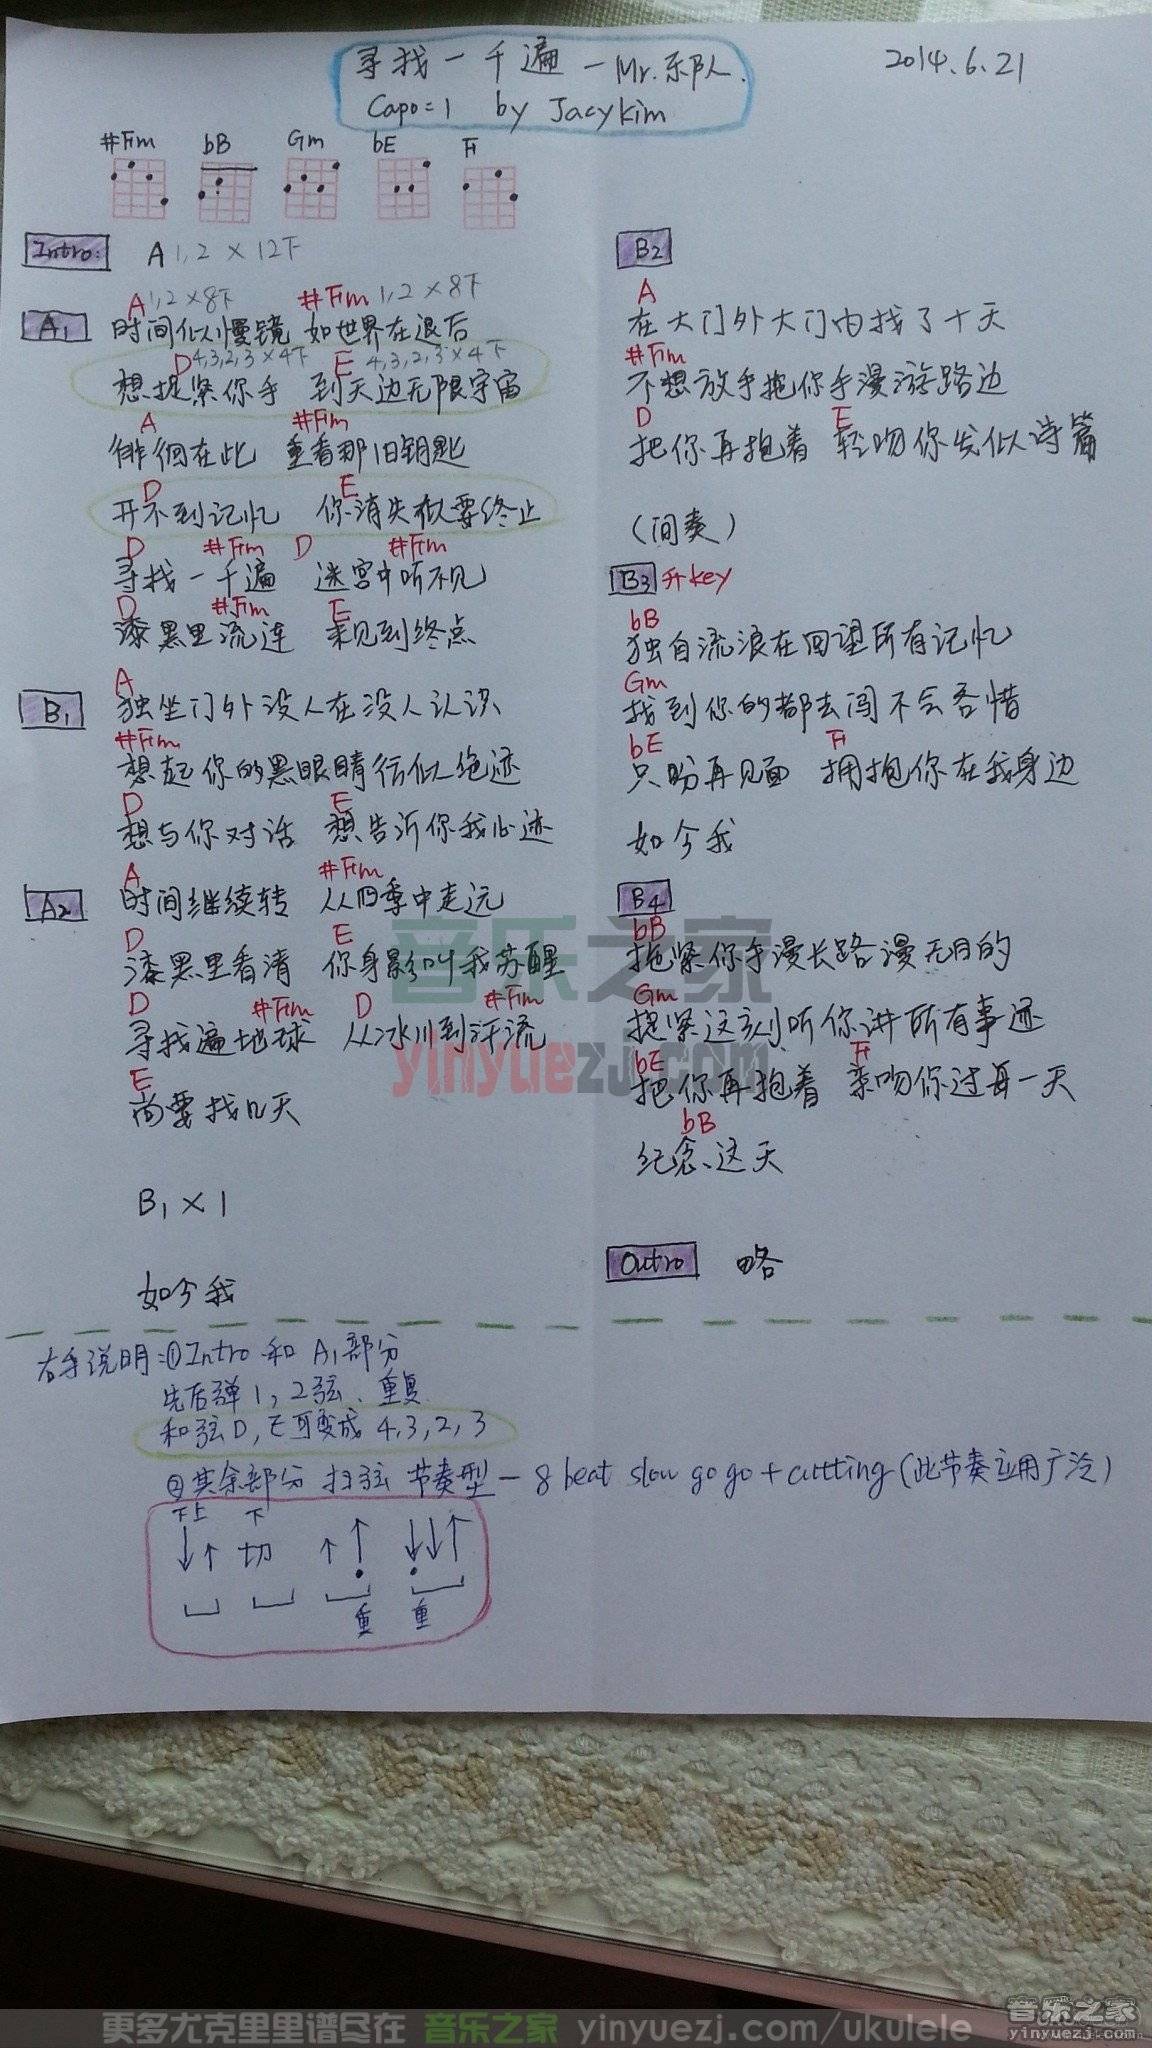 寻找一千遍 — Mr.乐队.
2014.6.21
Capo=1 by Jacykim
#Fm bB Gm bE F
Intro: A 1,2 × 12下
A 1,2×8下 #Fm 1,2×8下
A1 时间似慢镜 如世界在退后
D 4,3,2,3×4下 E 4,3,2,3×4下
想捉紧你手 到天边无限宇宙
A #Fm
徘徊在此 重看那旧钥匙
D E
开不到记忆 你消失似要终止
D #Fm D #Fm
寻找一千遍 迷宫中听不见
D #Fm E
漆黑里流连 未见到终点
A
B1 独坐门外没人在没人认识
#Fm
想起你的黑眼睛行似绝迹
D E
想与你对话 想告诉你我心迹
A #Fm
A2 时间继续转 从四季中走远
D E
漆黑里看清 你身影叫我苏醒
D #Fm D #Fm
寻找遍地球 从冰川到汗流
E
尚要找几天
B1×1
如今我
B2
A
在大门外大门内找了十天
#Fm
不想放手拖你手漫游路边
D E
把你再抱着 轻吻你发似诗篇
(间奏)
B3 升key
bB
独自流浪在回望所有记忆
Gm
找到你的都去闯不会吝惜
bE F
只盼再见面 拥抱你在我身边
如今我
B4
bB
拖紧你手漫长路漫无目的
Gm
捉紧这刻听你讲所有事迹
bE F
把你再抱着 亲吻你过每一天
bB
纪念这天
Outro 略
右手说明:①Intro 和 A1部分
先后弹1,2弦、重复
和弦D,E可变成 4,3,2,3
②其余部分 扫弦 节奏型 — 8 beat slow go go + cutting(此节奏应用广泛)
下上 下
↓↑ 切 ↑↑ ↓↓↑
重 重
音乐之家
yinyuezj.com
更多尤克里里谱尽在 音乐之家 yinyuezj.com/ukulele
音乐之家
yinyuezj.com